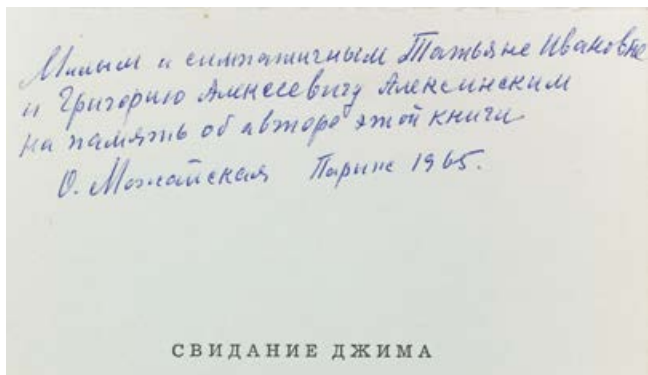 Милым и симпатичным Татьяне Ивановне
и Григорию Алексеевичу Алексинским
на память об авторе этой книги
О. Можайская Париж 1965.
СВИДАНИЕ ДЖИМА